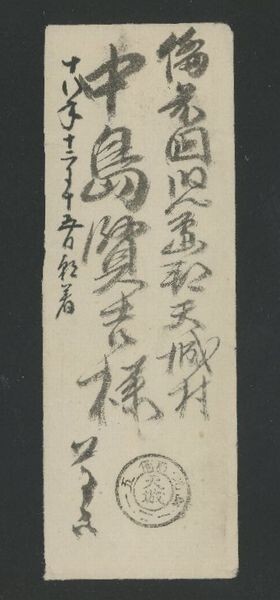 備前国児島郡天城村
中島賢吉様
十八年十二月十五日朝着
天城